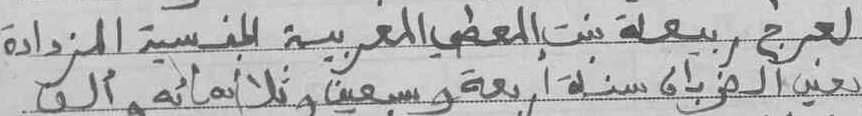 لعرج ربيعة بنت المعطي المغربية الجنسية المزدادة
بعين الضربان سنة أربعة وسبعين وثلاثمائة وألف